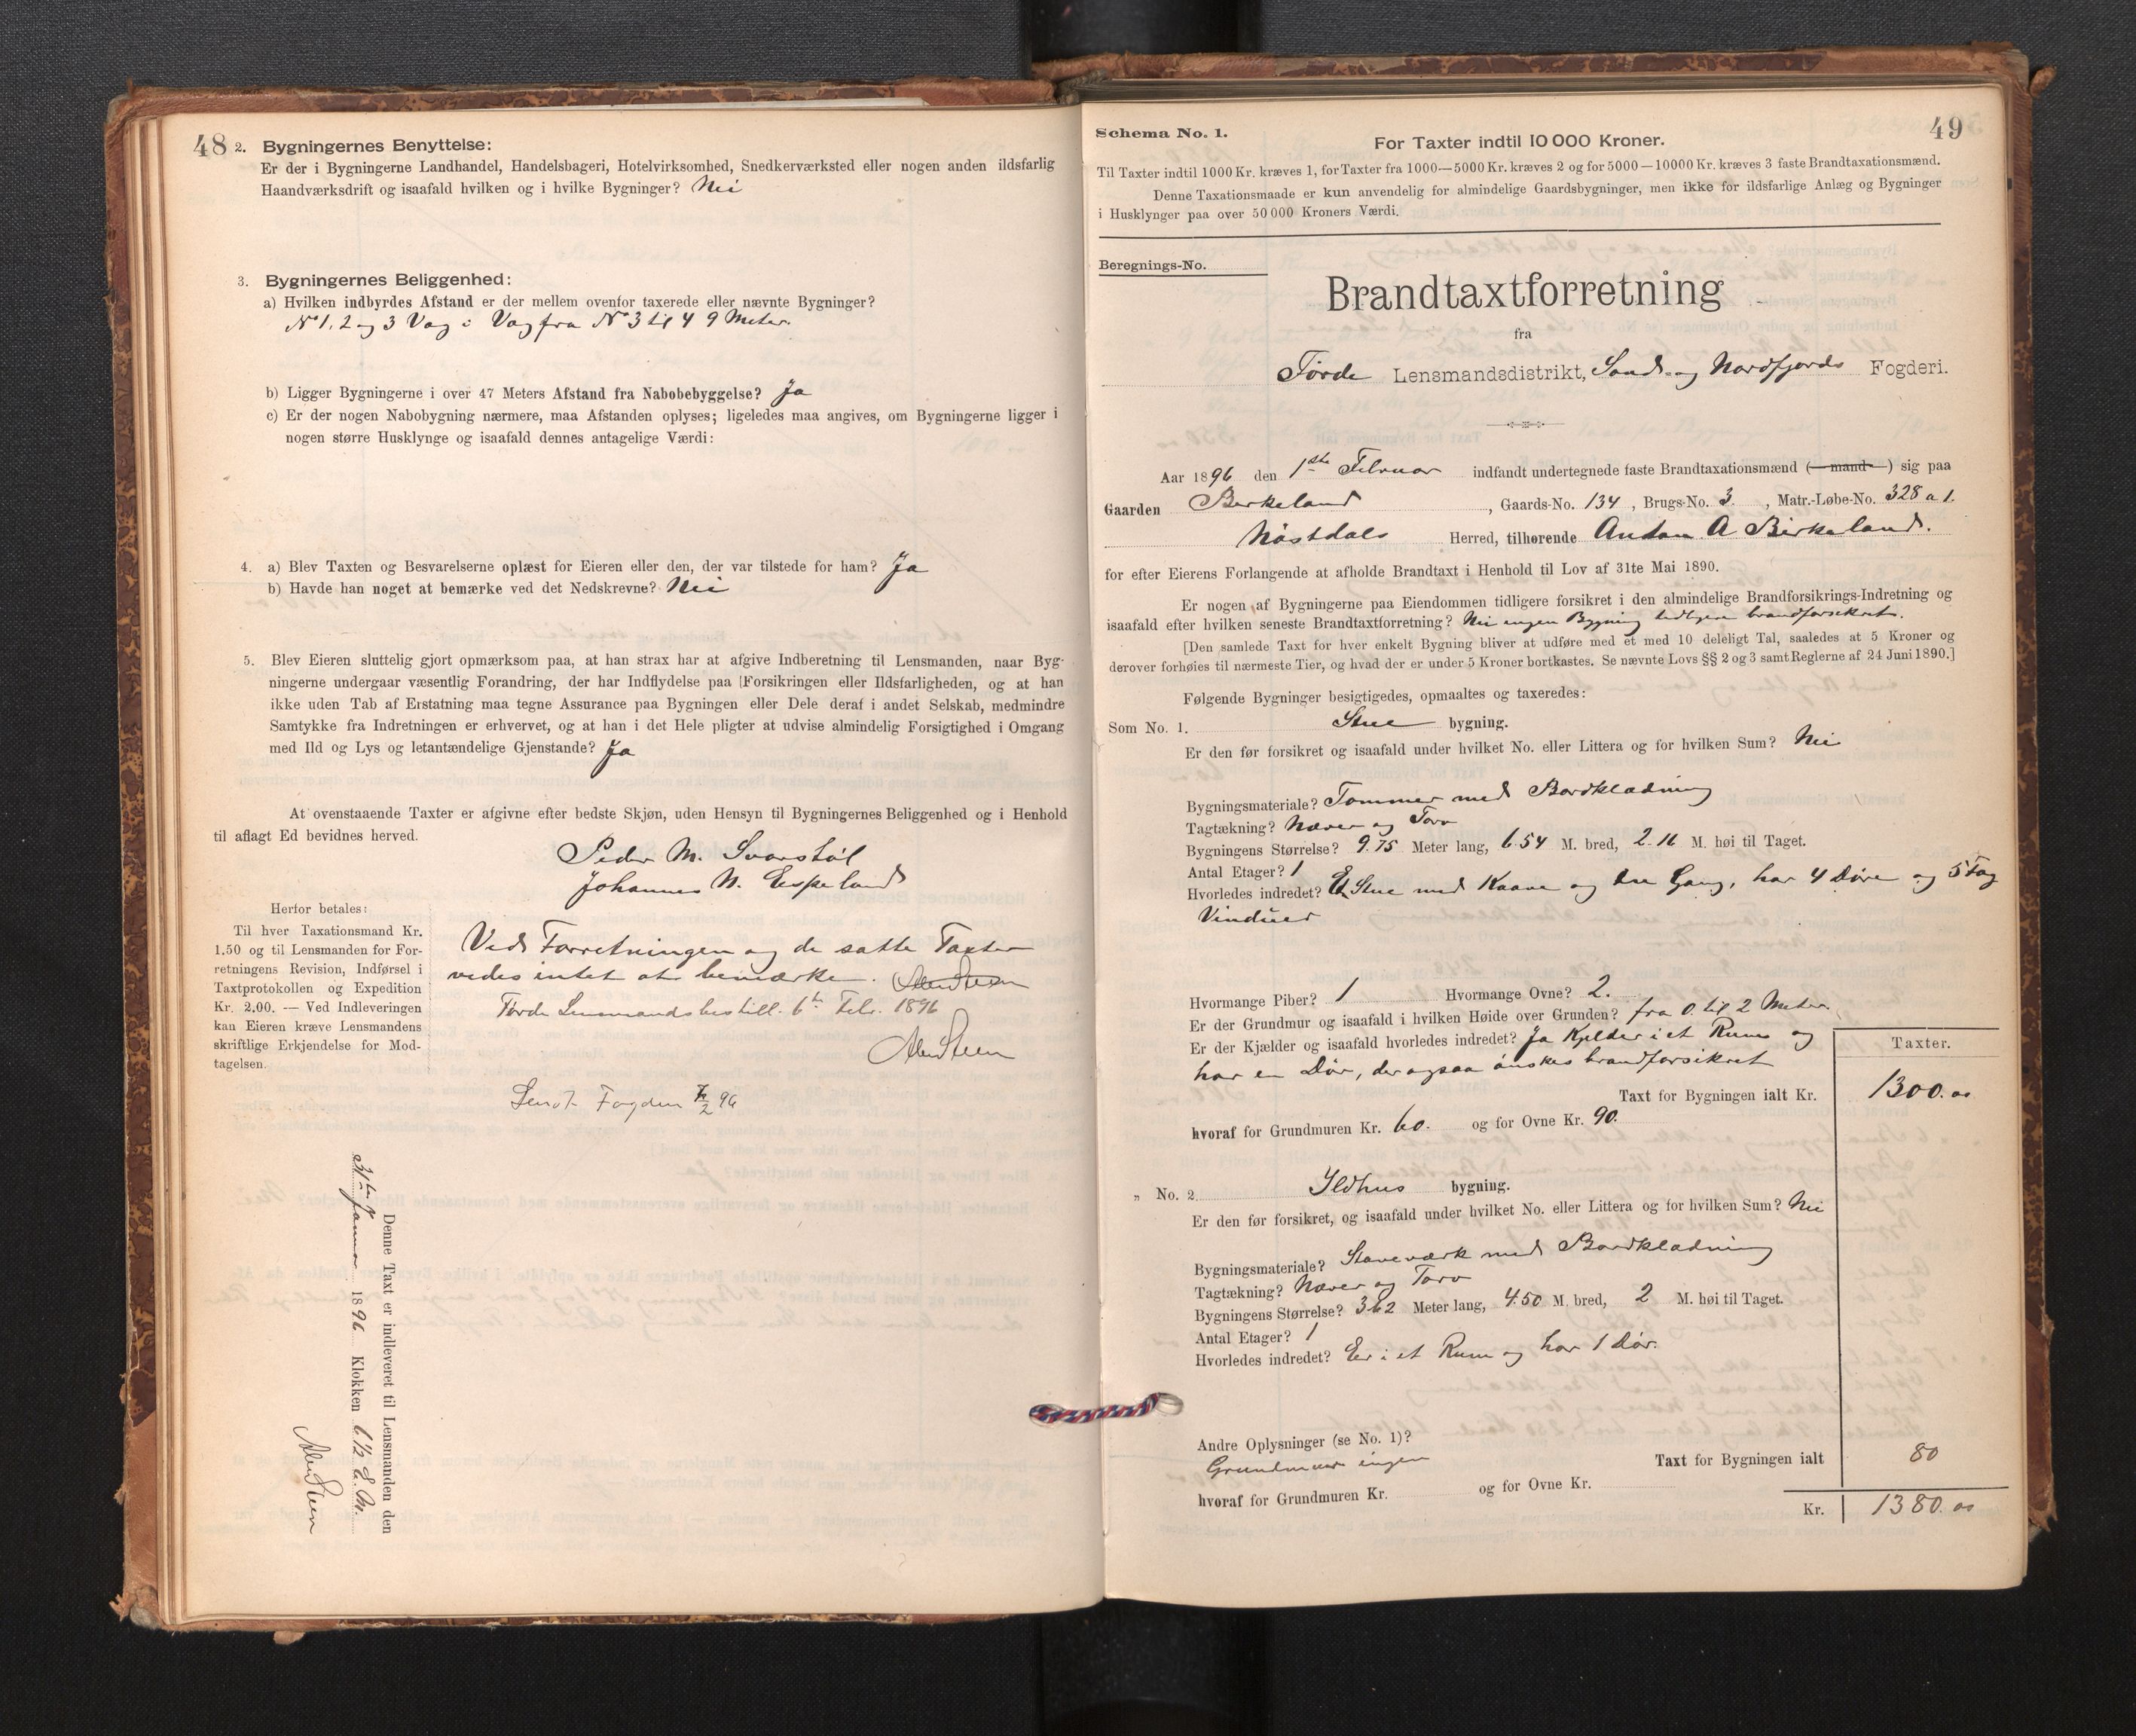 48
2. Bygningernes Benyttelse:
Er der i Bygningerne Landhandel, Handelsbageri, Hotelvirksomhed, Snedkerværksted eller nogen anden ildsfarlig
Haandværksdrift og isaafald hvilken og i hvilke Bygninger? Nei
3. Bygningernes Beliggenhed:
a) Hvilken indbyrdes Afstand er der mellem ovenfor taxerede eller nævnte Bygninger?
No 1, 2 og 3 Væg i Væg fra No 3 til 4 9 Meter.
b) Ligger Bygningerne i over 47 Meters Afstand fra Nabobebyggelse? Ja
c) Er der nogen Nabobygning nærmere, maa Afstanden oplyses; ligeledes maa angives, om Bygningerne ligger i
nogen større Husklynge og isaafald dennes antagelige Værdi:
4. a) Blev Taxten og Besvarelserne oplæst for Eieren eller den, der var tilstede for ham? Ja
b) Havde han noget at bemærke ved det Nedskrevne? Nei
5. Blev Eieren sluttelig gjort opmærksom paa, at han strax har at afgive Indberetning til Lensmanden, naar Byg-
ningerne undergaar væsentlig Forandring, der har Indflydelse paa Forsikringen eller Ildsfarligheden, og at han
ikke uden Tab af Erstatning maa tegne Assurance paa Bygningen eller Dele deraf i andet Selskab, medmindre
Samtykke fra Indretningen er erhvervet, og at han i det Hele pligter at udvise almindelig Forsigtighed i Omgang
med Ild og Lys og letantændelige Gjenstande? Ja
At ovenstaaende Taxter er afgivne efter bedste Skjøn, uden Hensyn til Bygningernes Beliggenhed og i Henhold
til aflagt Ed bevidnes herved.
Peder M. Svarstøl
Johannes N. Espeland
Herfor betales:
Til hver Taxationsmand Kr.
1.50 og til Lensmanden for For-
retningens Revision, Indførsel i
Taxtprotokollen og Expedition
Kr. 2,00. — Ved Indleveringen
kan Eieren kræve Lensmandens
skriftlige Erkjendelse for Mod-
tagelsen.
Ved Forretningen og de satte Taxter
vides intet at bemærke.
Førde Lensmandsbestill. 6te Febr. 1896
Sendt Fogden 7/2 96
Denne Taxt er indleveret til Lensmanden den
31te Januar 1896 Klokken 6 1/2 E.M.
49
Schema No. 1.
For Taxter indtil 10 000 Kroner.
Til Taxter indtil 1000 Kr. kræves 1, for Taxter fra 1000—5000 Kr. kræves 2 og for 5000—10000 Kr. kræves 3 faste Brandtaxationsmænd.
Denne Taxationsmaade er kun anvendelig for almindelige Gaardsbygninger, men ikke for ildsfarlige Anlæg og Bygninger
i Husklynger paa over 50 000 Kroners Værdi.
Beregnings-No.
Brandtaxtforretning
fra
Førde Lensmandsdistrikt, Sønd- og Nordfjords Fogderi.
Aar 1896 den 1ste Februar indfandt undertegnede faste Brandtaxationsmænd (—mand—) sig paa
Gaarden Birkeland, Gaards-No. 134, Brugs-No. 3, Matr.-Løbe-No. 328 a 1.
Nøstdals Herred, tilhørende Anton A Birkeland.
for efter Eierens Forlangende at afholde Brandtaxt i Henhold til Lov af 31te Mai 1890.
Er nogen af Bygningerne paa Eiendommen tidligere forsikret i den almindelige Brandforsikrings-Indretning og
isaafald efter hvilken seneste Brandtaxtforretning? Nei ingen Bygning tidligere brandforsikret.
[Den samlede Taxt for hver enkelt Bygning bliver at udføre med et med 10 deleligt Tal, saaledes at 5 Kroner og
derover forhøies til nærmeste Tier, og hvad der er under 5 Kroner bortkastes. Se nævnte Lovs §§ 2 og 3 samt Reglerne af 24 Juni 1890.]
Følgende Bygninger besigtigedes, opmaaltes og taxeredes:
Som No. 1. Stue bygning.
Er den før forsikret og isaafald under hvilket No. eller Littera og for hvilken Sum? Nei
Bygningsmateriale? Tømmer med Bordklædning
Tagtækning? Næver og Torv
Bygningens Størrelse? 9.75 Meter lang, 6.54 M. bred, 2.11 M. høi til Taget.
Antal Etager? 1
Hvorledes indredet? Et Stue med Kaave og tre Gang, har 4 Døre og 5 Fag
Vinduer
Hvormange Piber? 1 Hvormange Ovne? 2.
Er der Grundmur og isaafald i hvilken Høide over Grunden? fra 0 til 2 Meter.
Er der Kjælder og isaafald hvorledes indredet? Ja Kjelder i et Rum og
har en Dør, der ogsaa ønskes brandforsikret
Taxter.
Taxt for Bygningen ialt Kr. 1300.00
hvoraf for Grundmuren Kr. 60. og for Ovne Kr. 90.
„ No. 2. Ildhus bygning.
Er den før forsikret, og isaafald under hvilket No. eller Littera og for hvilken Sum? Nei
Bygningsmateriale? Staveværk med Bordklædning
Tagtækning? Næver og Torv
Bygningens Størrelse? 3.62 Meter lang, 4.50 M. bred, 2 M. høi til Taget.
Antal Etager? 1
Hvorledes indredet? Er i et Rum og har 1 Dør.
Andre Oplysninger (se No. 1)?
Grundmuur ingen
Taxt for Bygningen ialt 80
hvoraf for Grundmuren Kr. og for Ovne Kr.
Kr. 1380.00